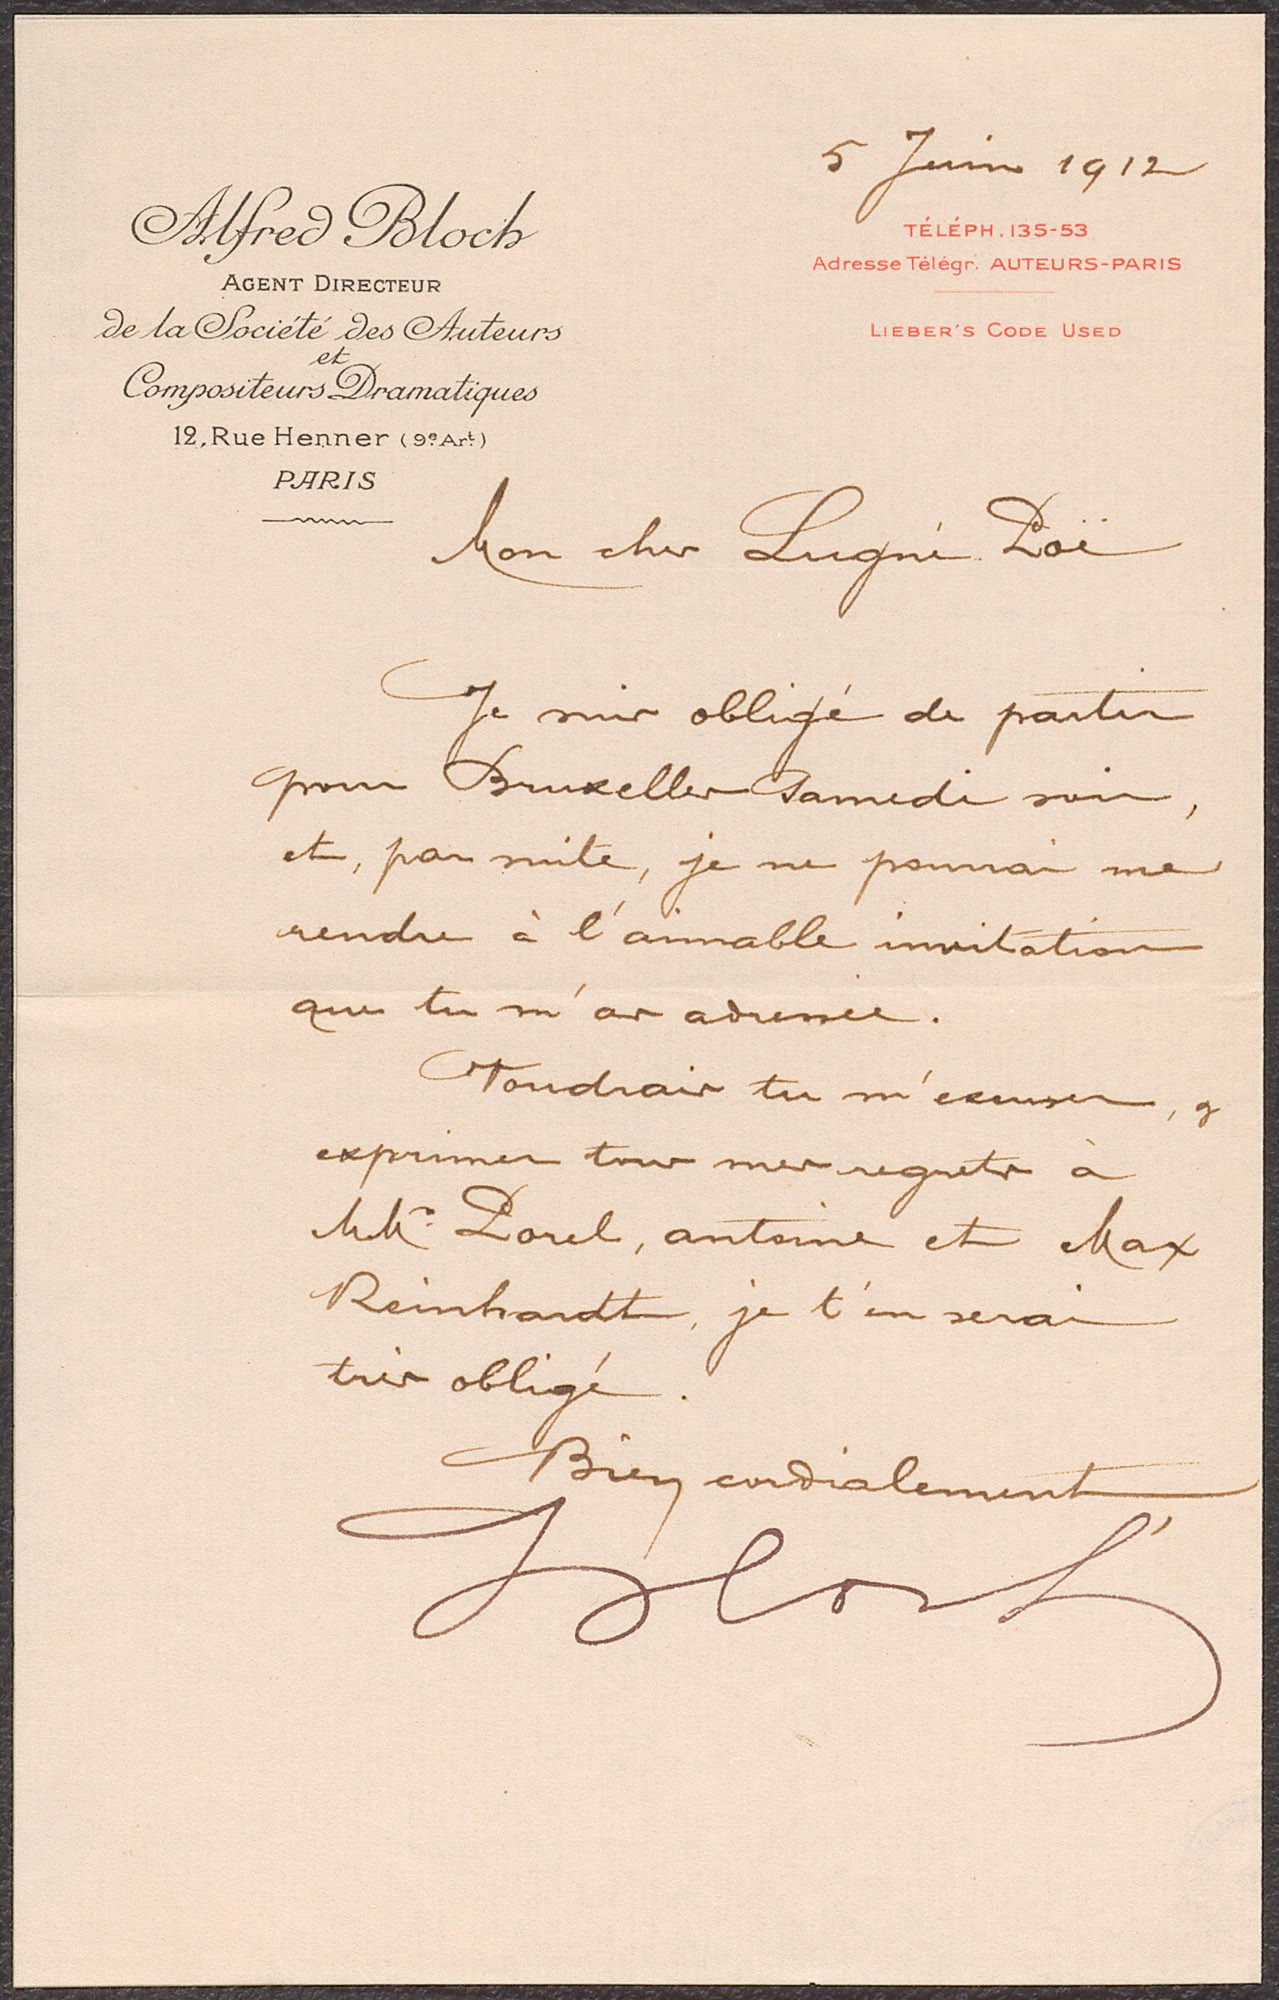 5 Juin 1912
Alfred Bloch
AGENT DIRECTEUR
de la Société des Auteurs
et
Compositeurs Dramatiques
12, Rue Henner (9e Art)
PARIS
TÉLÉPH. 135-53
Adresse Télégr. AUTEURS-PARIS
LIEBER'S CODE USED
Mon cher Lugné Poë
Je suis obligé de partir
pour Bruxelles Samedi soir,
et, par suite, je ne pourrai me
rendre à l'aimable invitation
que tu m'as adressée.
Voudrais tu m'excuser, &
exprimer tous mes regrets à
MMrs Porel, Antoine et Max
Reinhardt, je t'en serai
très obligé.
Bien cordialement
Bloch